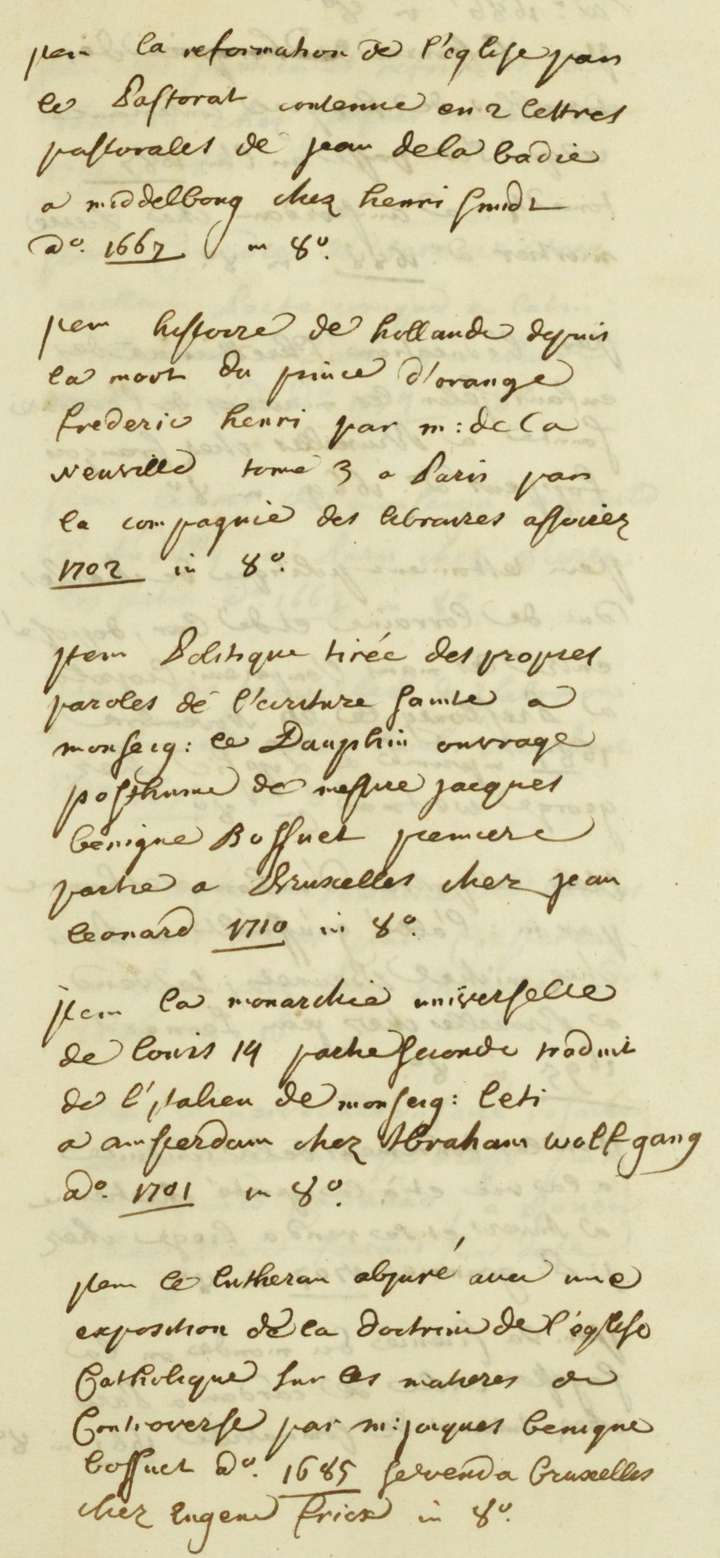 item la reformation de l'eglise par
le Pastorat contenue en 2 lettres
pastorales de jean dela badie
a middelbourg chez henri smidt
ao. 1667 in 8o.
item histoire de hollande depuis
la mort du prince d'orange
frederic henri par m: de la
Neuville tome 3 a Paris par
la compagnie des libraires associez
1702 in 8o.
item Politique tirée des propres
paroles de l'ecriture sainte a
monseig: le Dauphin ouvrage
posthume de messire jacques
bénigne Bossuet premiere
partie a Bruxelles chez jean
leonard 1710 in 8o.
item la monarchie universelle
de louis 14 partie seconde traduit
de l'italien de monseig: leti
a amsterdam chez Abraham wolfgang
ao. 1701 in 8o.
item le lutheran abjuré avec une
exposition de la doctrine de l'église
Catholique sur les matieres de
Controverse par m: jacques benigne
bossuet ao. 1685 se vend a bruxelles
chez Eugene fricx in 8o.